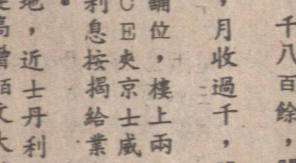 千八百餘，
，月收過千，
舖位，樓上兩
C E夾京士威
利息按揭給業
。
地，近士丹利